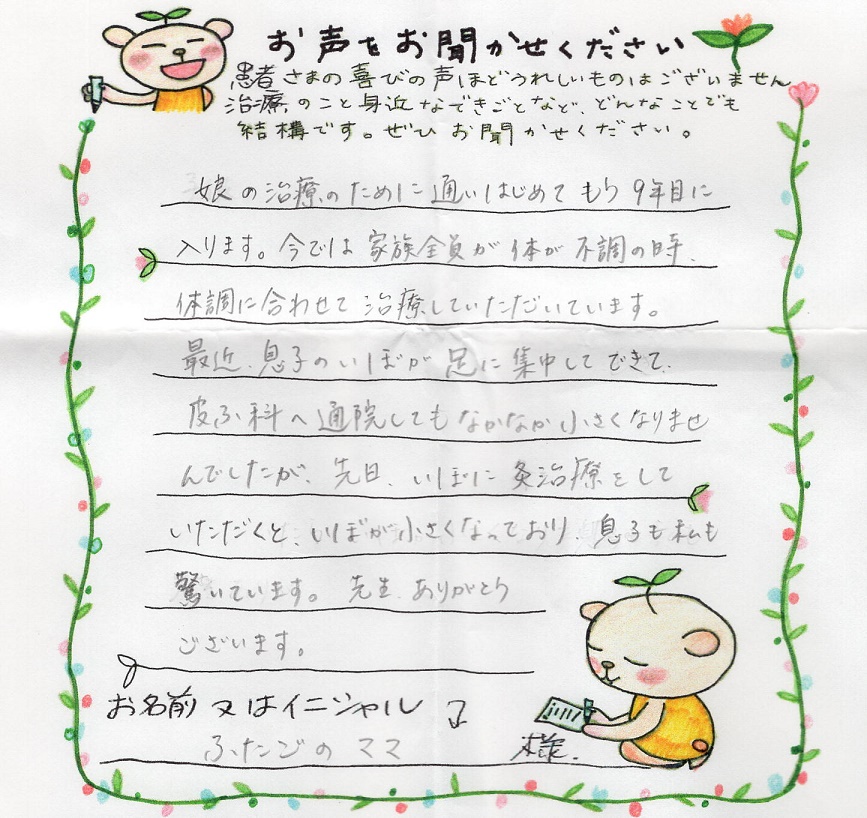 お声をお聞かせください
患者さまの喜びの声ほどうれしいものはございません
治療のこと身近なできごとなど、どんなことでも
結構です。ぜひお聞かせください。
娘の治療のために通いはじめてもう9年目に
入ります。今では家族全員が体が不調の時、
体調に合わせて治療していただいています。
最近、息子のいぼが足に集中してできて、
皮ふ科へ通院してもなかなか小さくなりませ
んでしたが、先日、いぼに灸治療をして
いただくと、いぼが小さくなっており、息子も私も
驚いています。先生、ありがとう
ございます。
お名前又はイニシャル
ふたごのママ 様